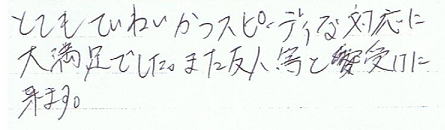 とてもていねいかつスピーディな対応に
大満足でした。また友人等と受けに
来ます。